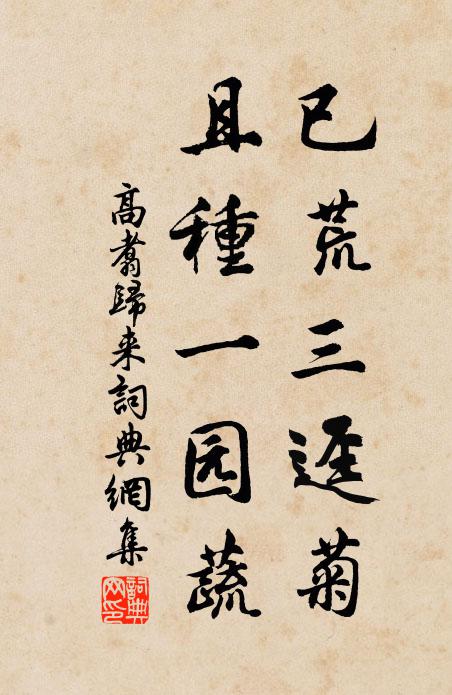 已荒三迳菊
且種一园蔬
高翥歸来詞典網集
詞典网印